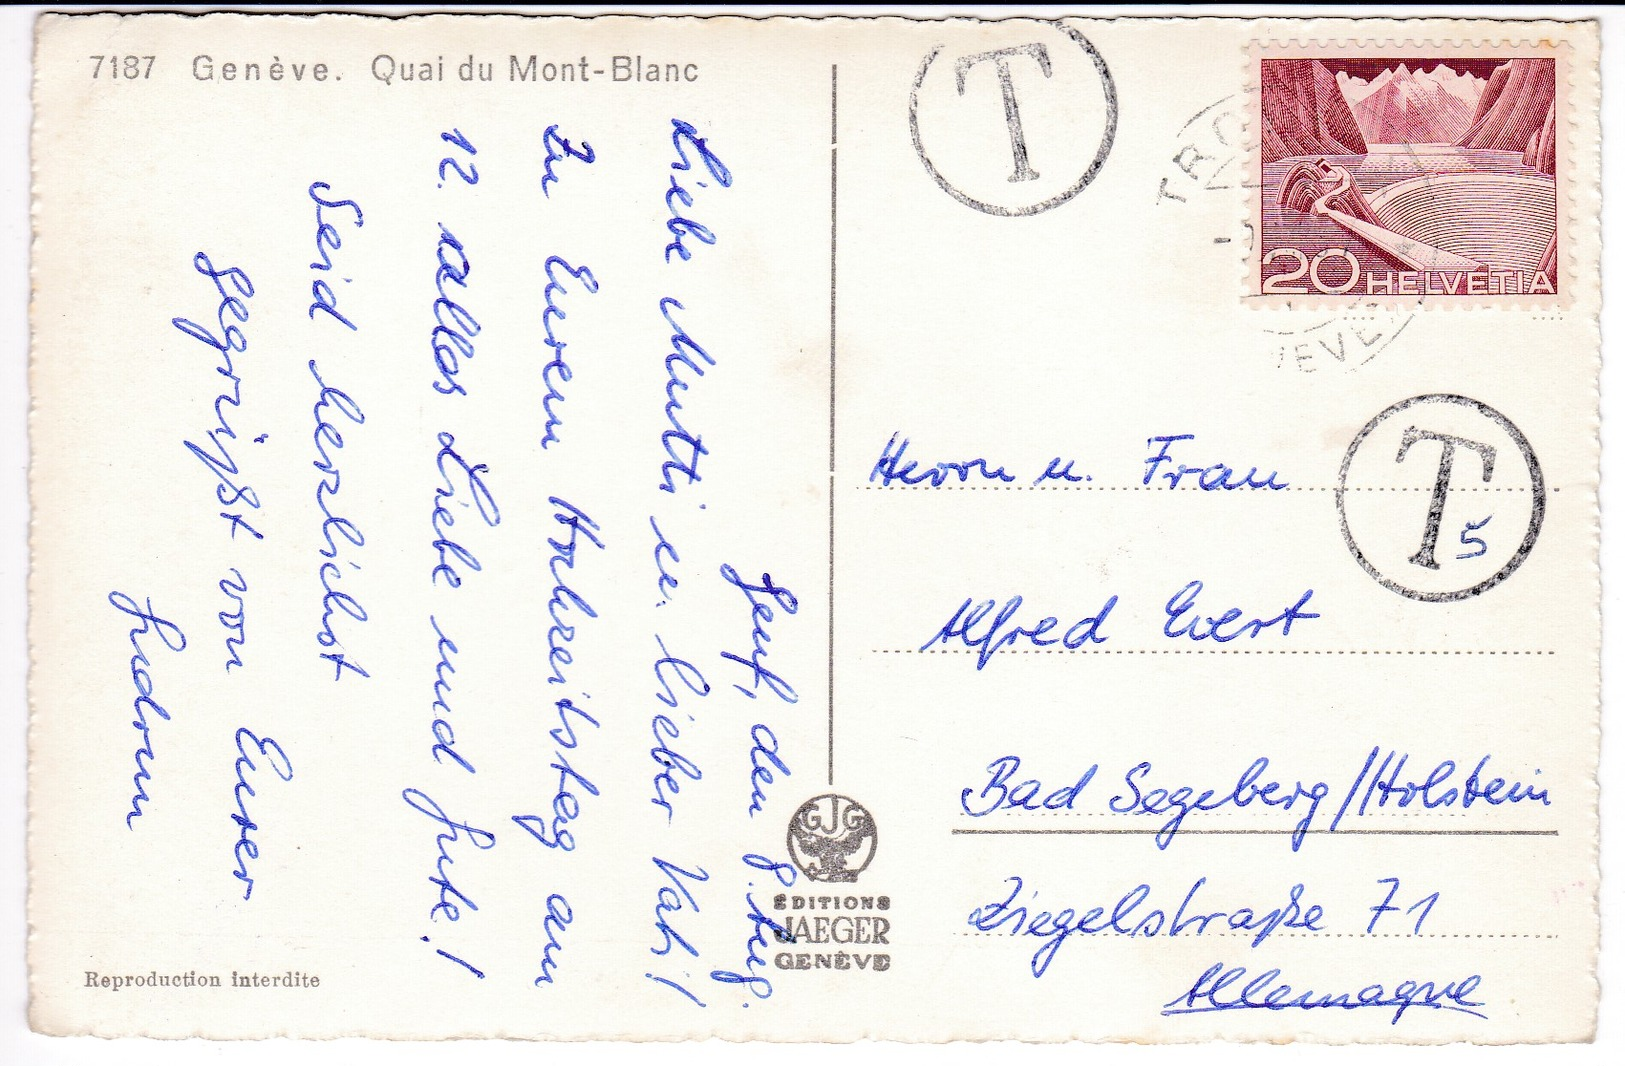 7187 Genève. Quai du Mont-Blanc
Genf, den 8. Aug.
Liebe Mutti u. lieber Vati!
Zu Eurem Hochzeitstag am
12. alles Liebe und Gute!
Seid herzlichst
gegrüßt von Eurer
Gudrun
Reproduction interdite
GJG
EDITIONS
JAEGER
GENÈVE
T
20 HELVETIA
T
5
Herrn u. Frau
Alfred Evert
Bad Segeberg/Holstein
Ziegelstraße 71
Allemagne